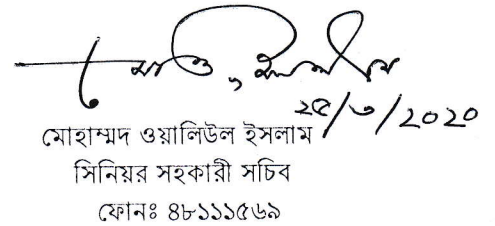 ২৫/৩/২০২০
মোহাম্মদ ওয়ালিউল ইসলাম
সিনিয়র সহকারী সচিব
ফোনঃ ৪৮১১১৫৬৯